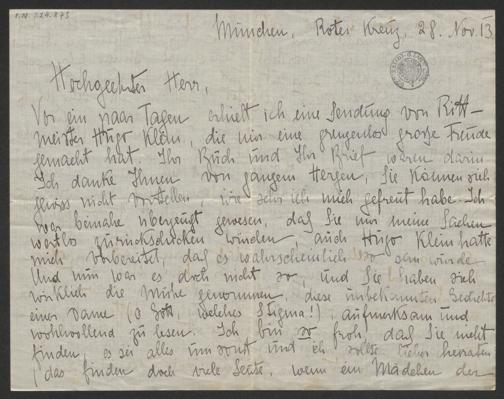 München, Rotes Kreuz, 28. Nov. 13
Hochgeehrter Herr,
Vor ein paar Tagen erhielt ich eine Sendung von Ritt-
meister Hugo Klein, die mir eine grenzenlos große Freude
gemacht hat. Ihr Buch und Ihr Brief waren darin
Ich danke Ihnen von ganzem Herzen, Sie können sich
gewiss nicht vorstellen, wie sehr ich mich gefreut habe. Ich
war beinahe überzeugt gewesen, daß Sie mir meine Sachen
wortlos zurückschicken würden, auch Hugo Klein hatte
mich vorbereitet, daß es wahrscheinlich so sein würde.
Und nun war es doch nicht so, und Sie haben sich
wirklich die Mühe genommen, diese unbekannten Gedichte
einer Dame (o Gott, welches Stigma!), aufmerksam und
wohlwollend zu lesen. Ich bin so froh, daß Sie nicht
finden, es sei alles umsonst und ich sollte lieber heiraten
(das finden doch viele Leute, wenn ein Mädchen der